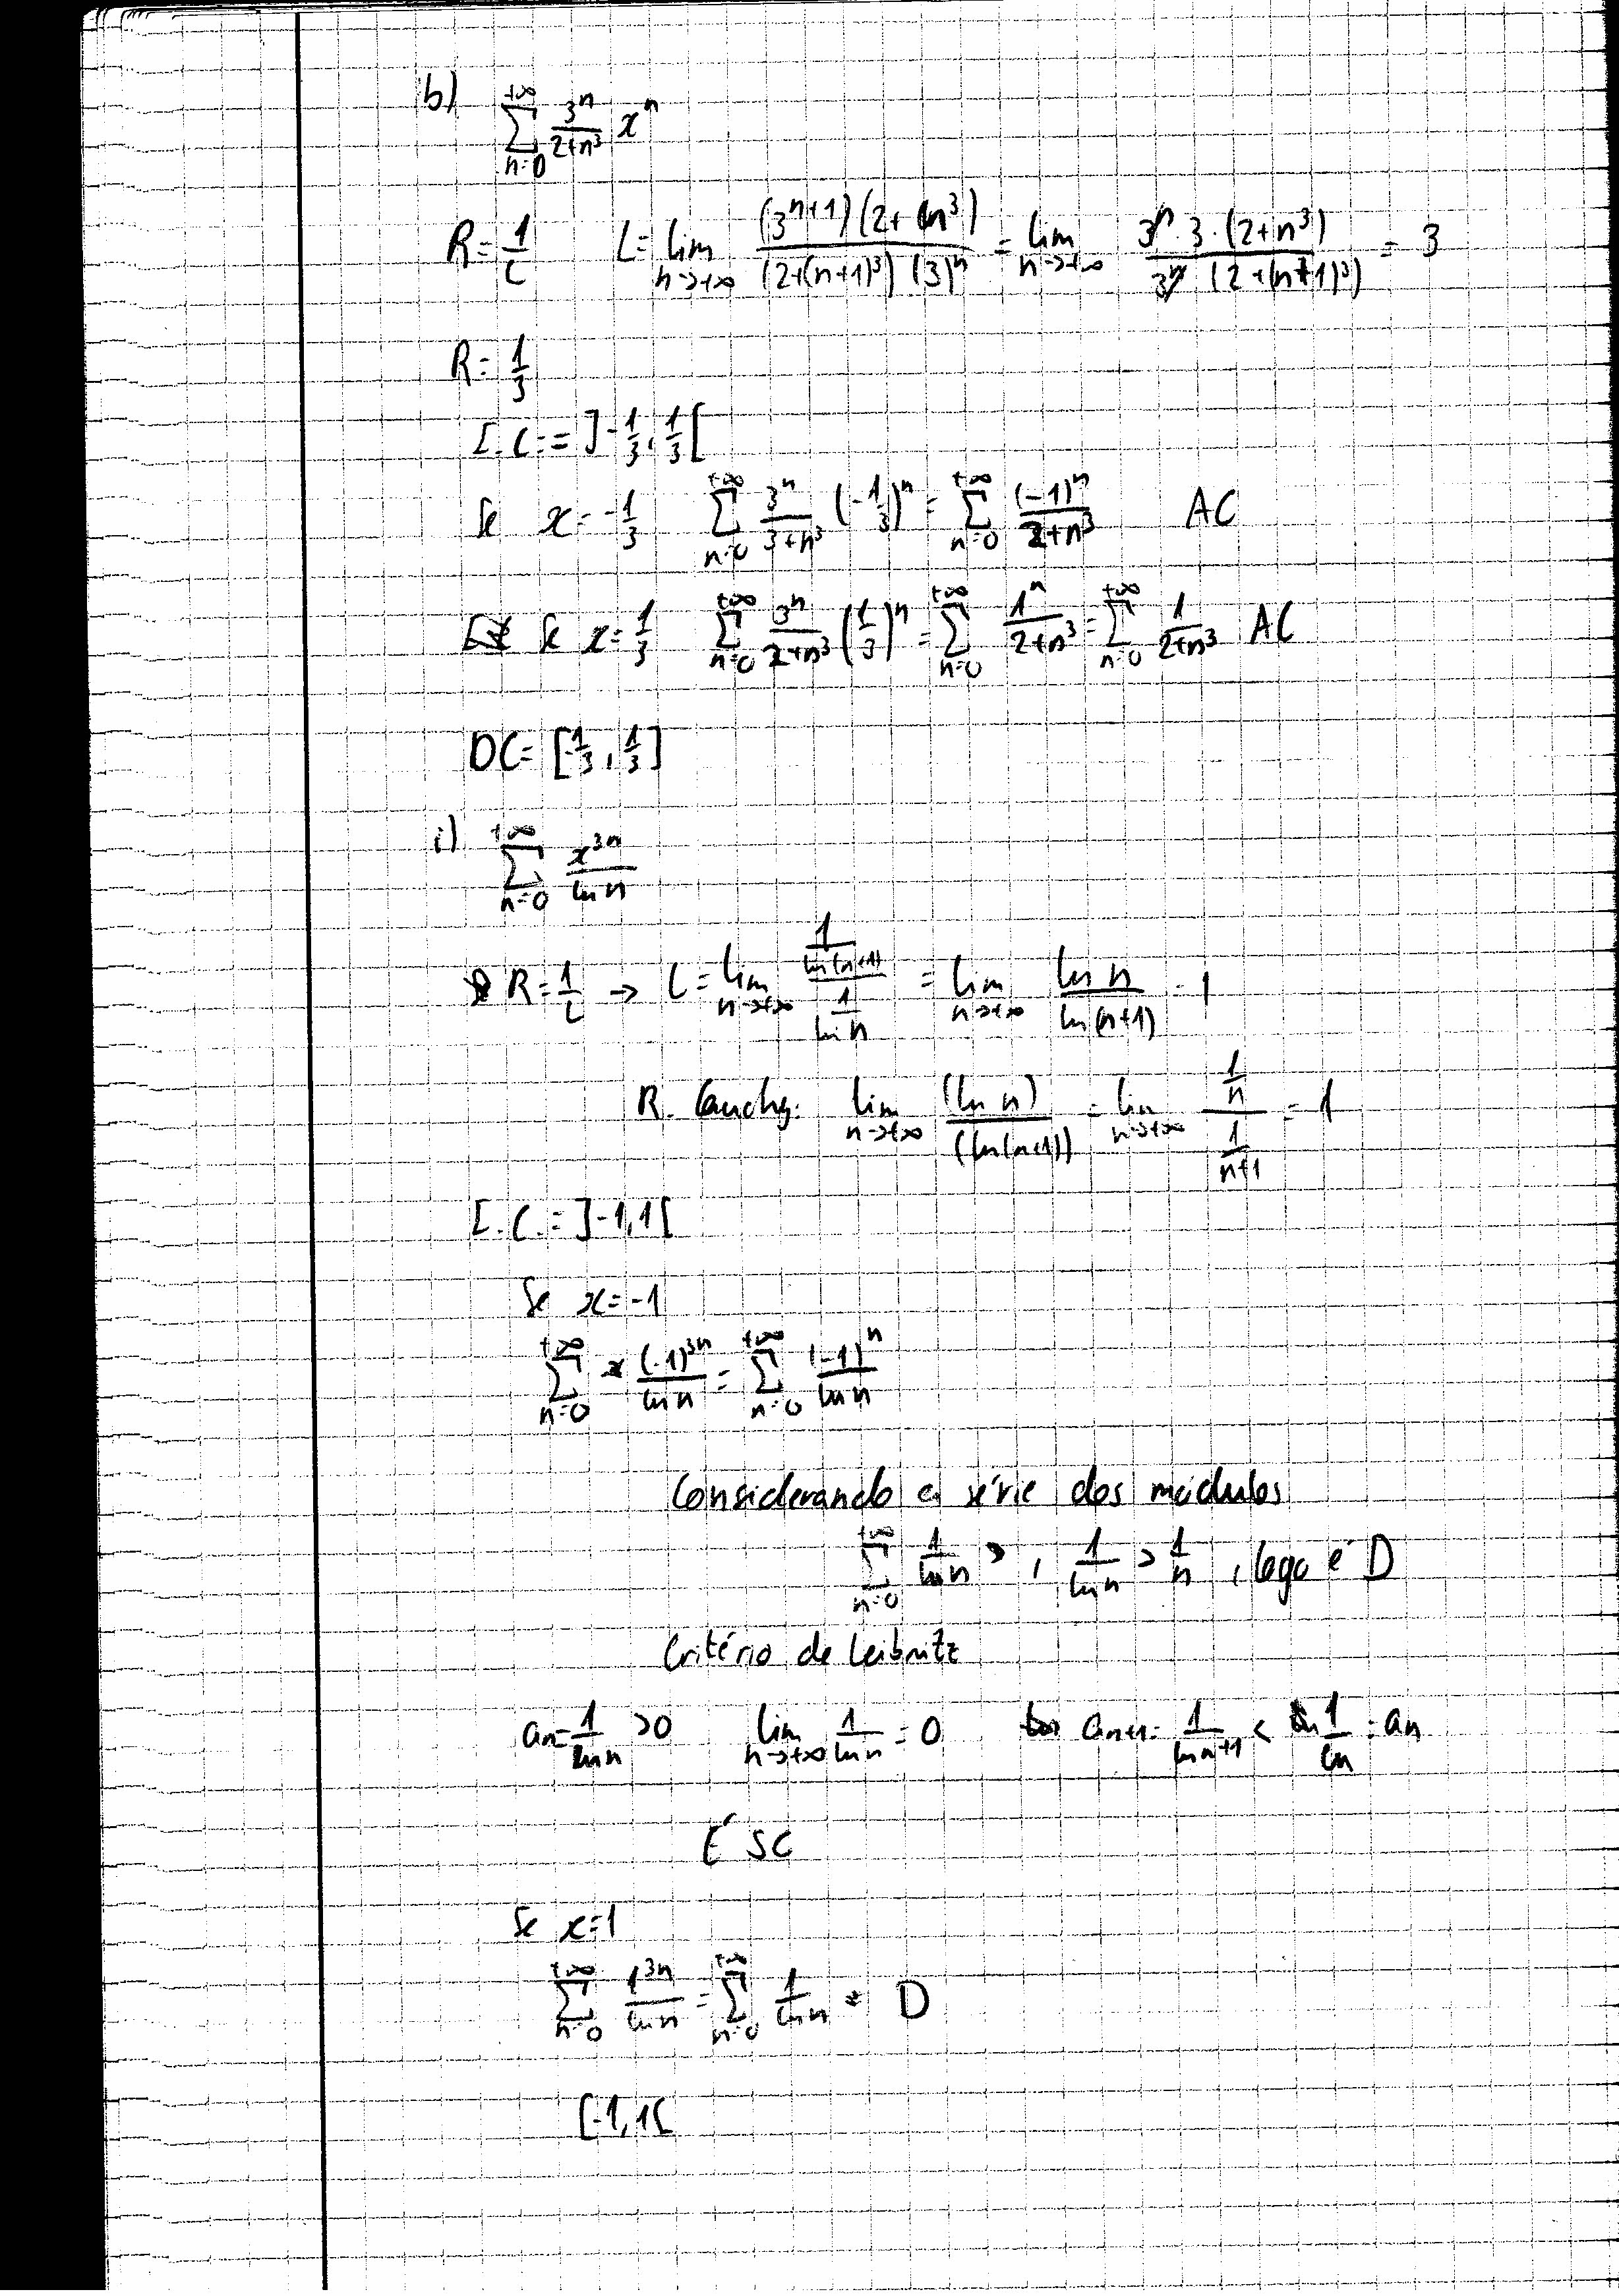 b) \sum_{n=0}^{+∞} \frac{3^n}{2+n^3} x^n
R = \frac{1}{L}   L = \lim_{n→+∞} \frac{(3^{n+1})(2+n^3)}{(2+(n+1)^3)(3)^n} = \lim_{n→+∞} \frac{3^n · 3 · (2+n^3)}{3^n (2+(n+1)^3)} = 3
R = \frac{1}{3}
I.C. = ]-\frac{1}{3}, \frac{1}{3}[
Se x = -\frac{1}{3}   \sum_{n=0}^{+∞} \frac{3^n}{3+n^3} (-\frac{1}{3})^n = \sum_{n=0}^{+∞} \frac{(-1)^n}{2+n^3}   AC
Se x = \frac{1}{3}   \sum_{n=0}^{+∞} \frac{3^n}{2+n^3} (\frac{1}{3})^n = \sum_{n=0}^{+∞} \frac{1^n}{2+n^3} = \sum_{n=0}^{+∞} \frac{1}{2+n^3}   AC
DC = [-\frac{1}{3}, \frac{1}{3}]
i) \sum_{n=0}^{+∞} \frac{x^{3n}}{ln n}
R = \frac{1}{L} → L = \lim_{n→+∞} \frac{\frac{1}{ln(n+1)}}{\frac{1}{ln n}} = \lim_{n→+∞} \frac{ln n}{ln(n+1)} = 1
R. Cauchy: \lim_{n→+∞} \frac{(ln n)}{(ln(n+1))} = \lim_{n→+∞} \frac{\frac{1}{n}}{\frac{1}{n+1}} = 1
I.C. = ]-1,1[
Se x = -1
\sum_{n=0}^{+∞} \frac{(-1)^{3n}}{ln n} = \sum_{n=0}^{+∞} \frac{(-1)^n}{ln n}
Considerando a série dos módulos
\sum_{n=0}^{+∞} \frac{1}{ln n} , \frac{1}{ln n} > \frac{1}{n} , logo é D
Critério de Leibnitz
an = \frac{1}{ln n} > 0   \lim_{n→+∞} \frac{1}{ln n} = 0   an+1 = \frac{1}{ln n+1} < \frac{1}{ln} = an
É SC
Se x = 1
\sum_{n=0}^{+∞} \frac{1^{3n}}{ln n} = \sum_{n=0}^{+∞} \frac{1}{ln n}   D
[-1,1[